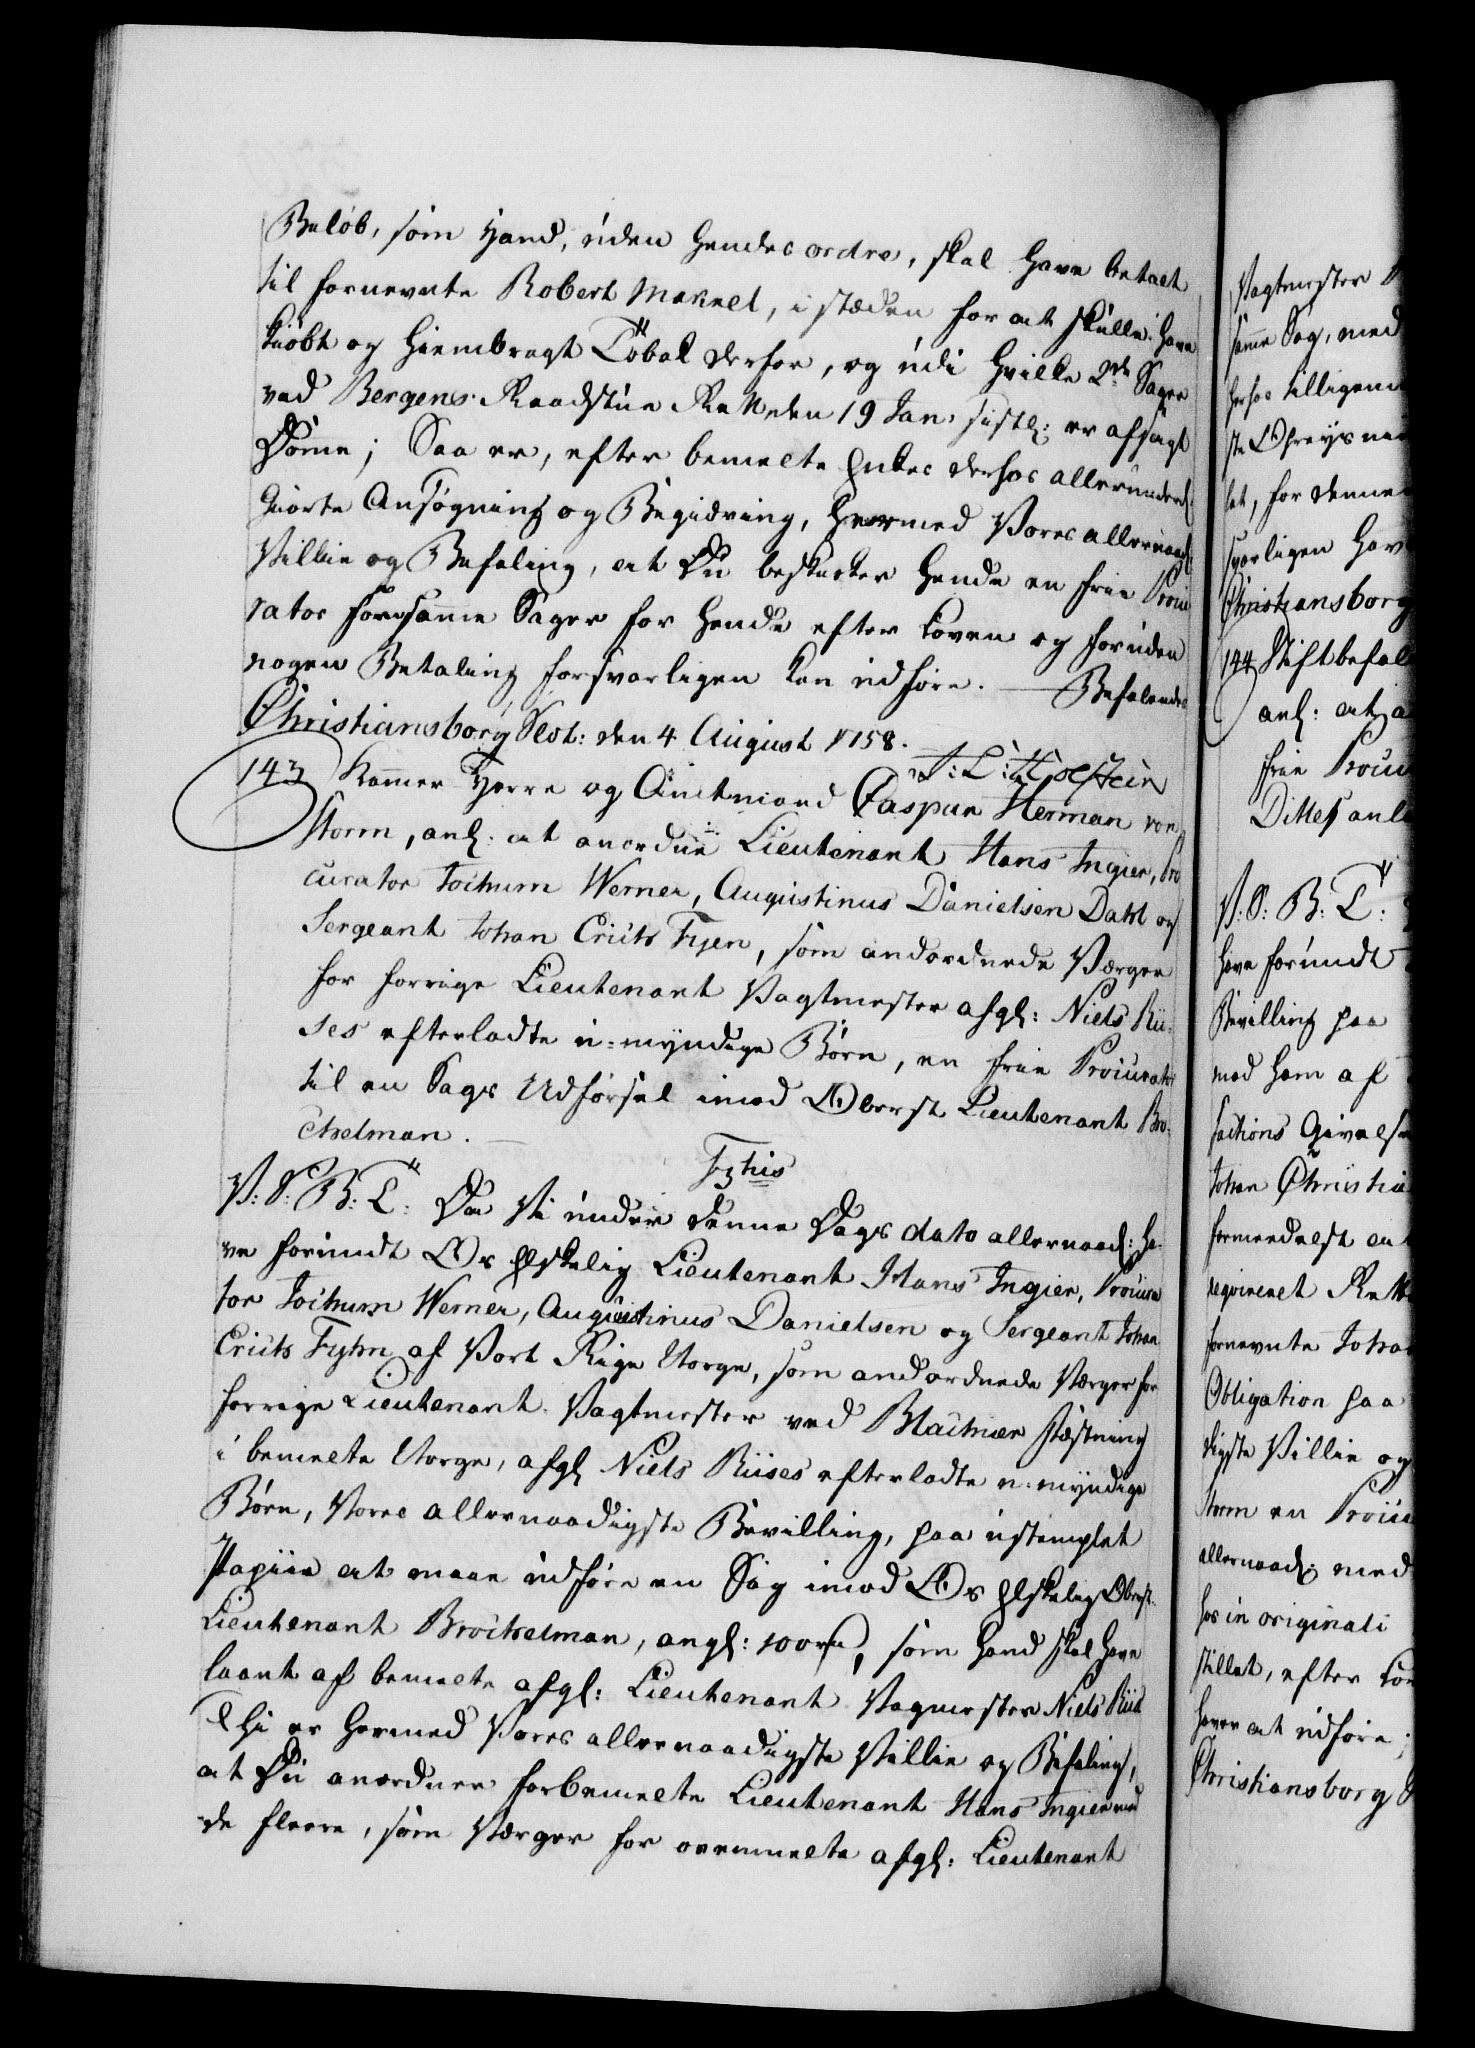 Beløb, som Hand, uden hendes ordre, skal have betalt
til fornevnte Robert Marnel, i stæden for at skulle have
kiøbt og hiembragt Tobak derfor, og udi hvilke 2de Sager
ved Bergens Raadstue Rett den 19 Jan: sistl: er afsagt
Domme; Saa er, efter bemelte Enkes derhos allerunderd:
giorte Ansøgning og Begiæring, hermed Vores allernaad:
Villie og Befaling, at Du beskikker hende en frie Procu
rator som samme Sager for hende efter Loven og foruden
nogen Betaling forsvarligen kan udføre. — Befalendes
Christiansborg Slot: den 4 August 1758.
J: L: Holstein
143 Kammer Herre og Amtmand Caspar Herman von
Storm, anl: at anordne Lieutenant Hans Ingier, Pro
curator Jochum Werner, Augustinus Danielsen Dahl og
Sergeant Johan Erichs Fyen, som andordnede Værger
for forrige Lieutenant Vagtmester afgl: Niels Rii=
ses efterladte u=myndige Børn, en frie Procurator
til en Sags Udførsel imod Oberst Lieutenant Bro=
chelman. —
Fyhis
V: S: G: T: Da Vi under denne Dags dato allernaad: ha=
ve forundt Os Elskelig Lieutenant Hans Ingier, Procura
tor Jochum Werner, Augustinus Danielsen og Sergeant Johan
Erichs Fyhn af Vort Rige Norge, som andordnede Værger for
forrige Lieutenant Vagtmester ved Blachier Fæstning
i bemelte Norge, afgl: Niels Riises efterladte u=myndige
Børn, Vores allernaadigste Bevilling, paa ustemplet
Papiir at maae udføre en Sag imod Os Elskelig Oberst=
Lieutenant Brochelman, angl: 100 rd, som hand skal have
laant af bemelte afgl: Lieutenant Vagmester Niels Riis
Thi er hermed Vores allernaadigste Villie og Befaling,
at Du anordner forbemelte Lieutenant Hans Ingier med
de fleere, som Værger for ovenmelte afgl: Lieutenant
Vagtmester
samme Sag, med
herhos tilligemed
for denne
forsvarligen
Christiansborg
144 Stiftbefal
anl: at
frie Procu
Dittes anl
V: S: G: T:
have forundt
Bevilling paa
mod ham af
Johan Christia
formeedelst en
reqvireret Rett
fornevnte Johan
Obligation paa
digste Villie og
Storm en Procu
allernaad: med
hos in originali
stillet, efter Lov
haver at udføre;
Christiansborg